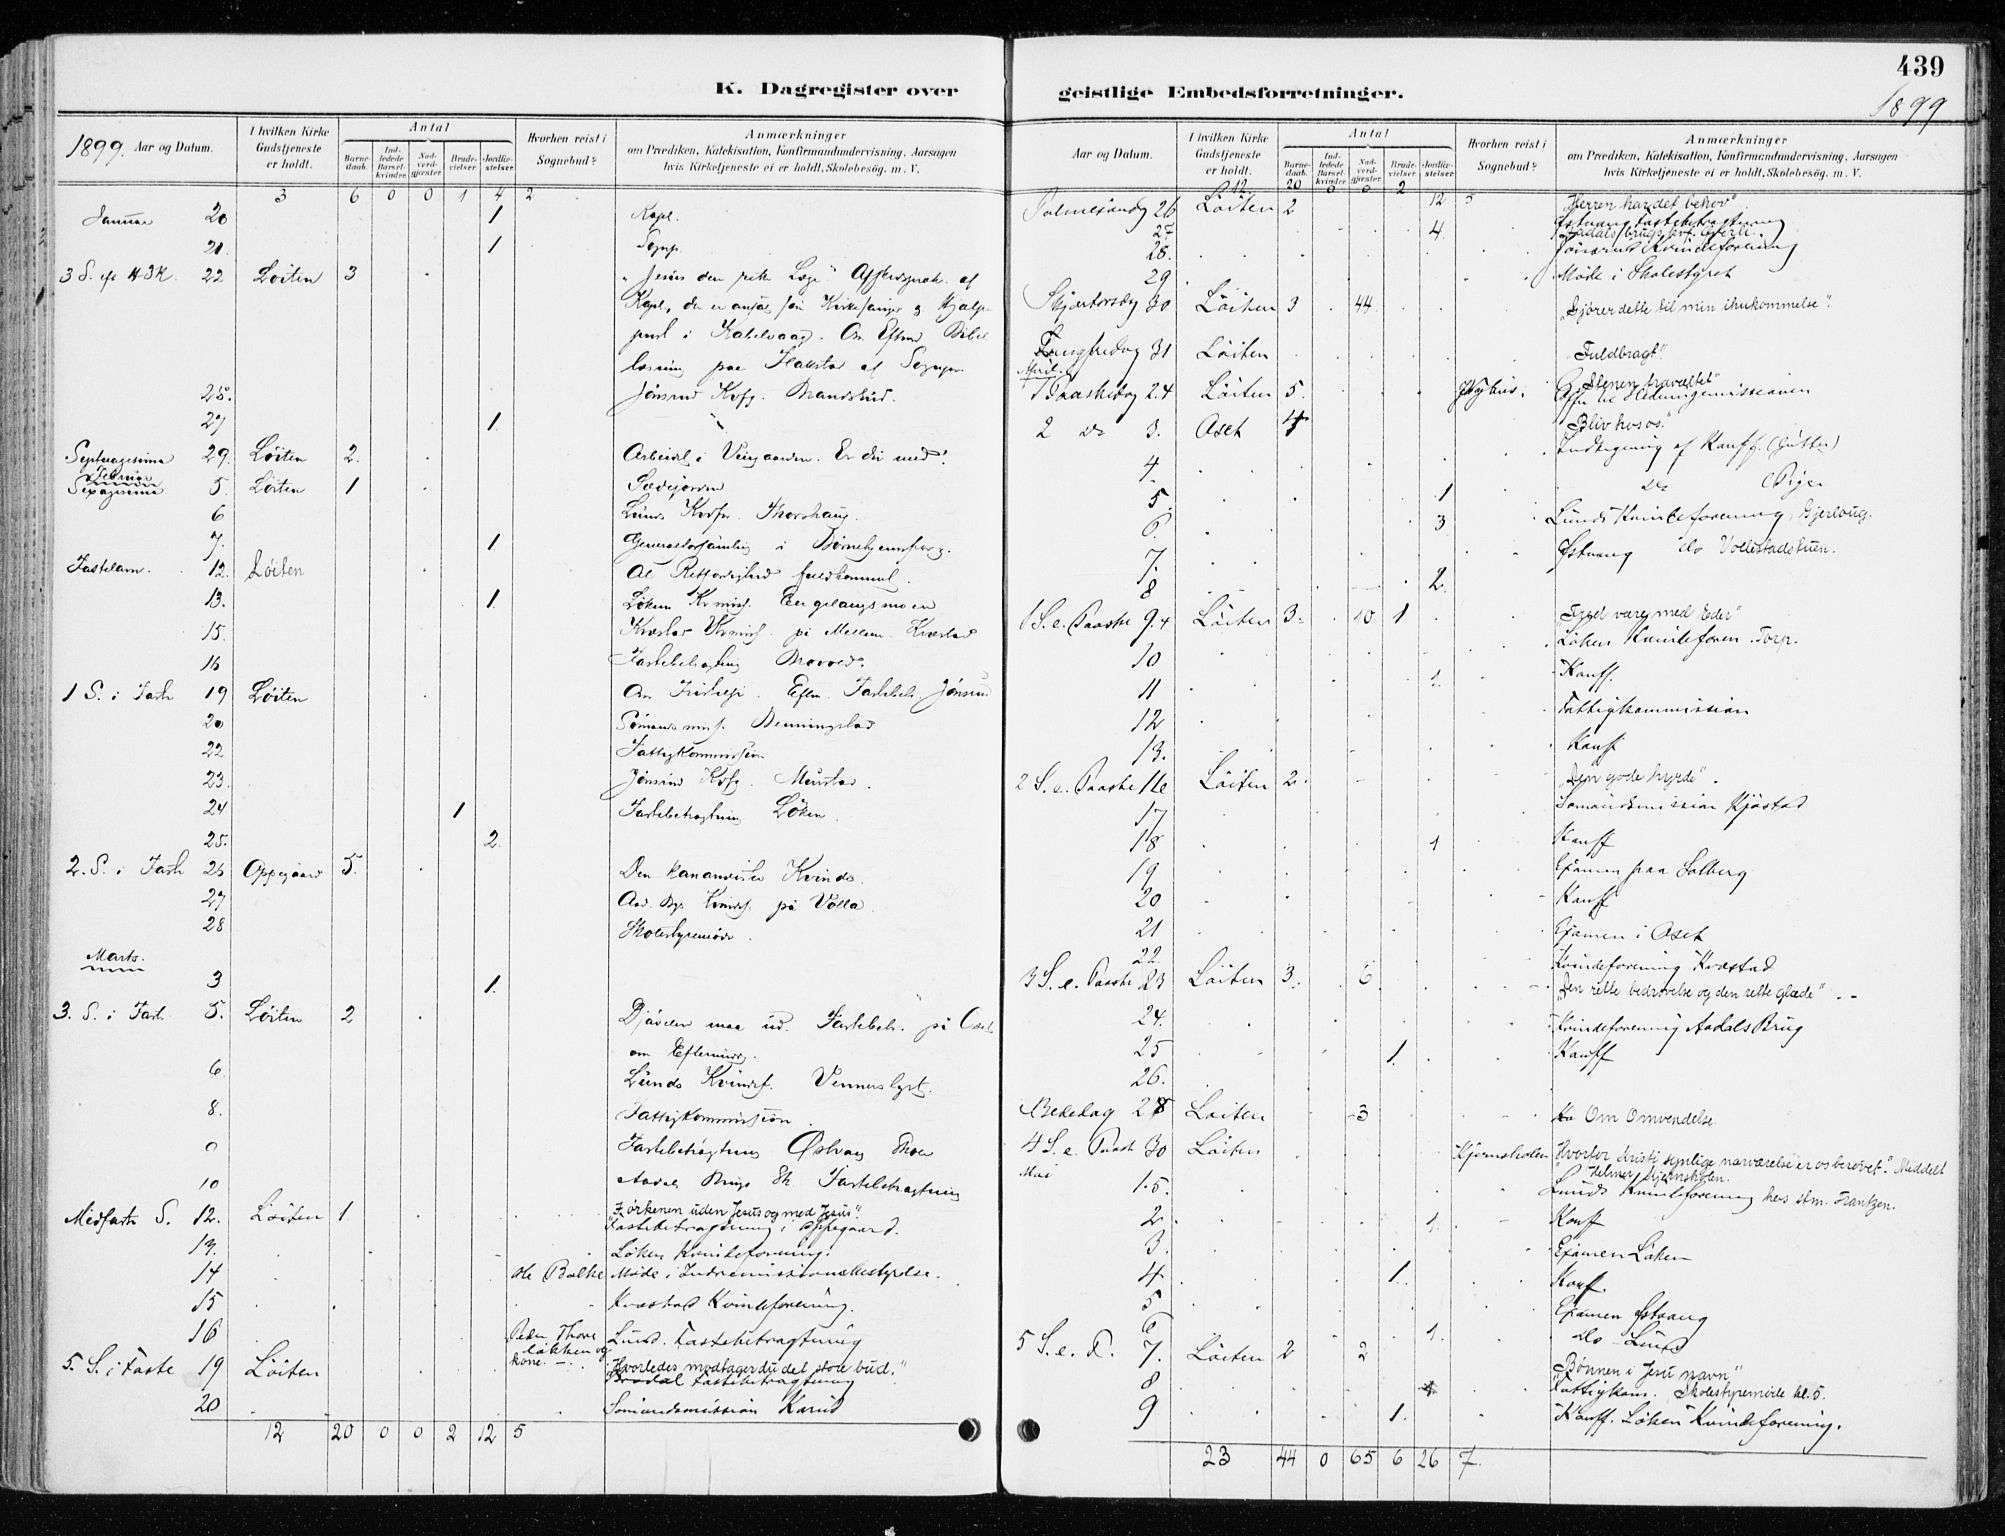 439
K. Dagregister over geistlige Embedsforretninger.
1899
1899. Aar og Datum.
I hvilken Kirke Gudstjeneste er holdt.
Antal
Barne-daab.
Ind-ledede Barsel-kvinder.
Nad-verd-gjester
Brude-vielser.
Jordfæ-stelser.
Hvorhen reist i Sognebud?
Anmærkninger
om Prædiken, Katekisation, Konfirmandundervisning, Aarsagen
hvis Kirketjeneste ei er holdt, Skolebesøg. m. V.
3 6 0 0 1 4 2
Januar 20 1 Kapl.
21. 1 Sogp.
3 S. ef H3K. 22 Löiten 3 "Jesus den rette Læge" Afskedspræk. af
Kapl., der er ansat som Kirkesanger og Hjælpe
prest i Kabelvaag. Om Efterm Bibel
læsning paa af Sognepr
25. Jønsrud Kvfg. Brandstad.
27 1
Septuagesima 29. Löiten 2. Arbeidet i Viingaarden. Er du med?
Februar
Sexagesima 5. Löiten 1 Sædejorden
6 Lunds Kvfor. Thorshaug.
7. 1 Generalforsamling i
Fastelavn. 12. Löiten Al Retfærdighed fuldkommet.
13. 1. Løken Kvmis. Berglangsmoen
15. Kvæstad Kvmis. på Mellem Kvæstad
16 Fastebetragtning
1 S. i Fast 19 Löiten Om Fristelse. Efterm. Fastebetr. Jønsrud
20 Sømandsmis. Benningstad
22 Fattigkommission
23. Jønsrud Kvfg.
24 1 Fastebetragtning Löken.
25. 2.
2. S. i Fast 26 Oppegaard 5. Den kananæiske Kvinde.
27 Aad. Brgs Kvindef. på Volla
28 Skolestyremöde.
Marts.
3 1.
3. S. i Fast 5. Löiten 2 Djævelen maa ud. Fastebetr. på Oset
om Eftermidg.
6. Lunds Kvindef. Vennerslyst.
8. Fattigkommission
9 Fastebetragtning Østvang Skole
10 Aadals Brugs Sk. Fastebetragtning
Midfaste S. 12. Löiten 1. "I ørkenen uden Jesus og med Jesus".
Fastebetragtning i Oppegaard.
13. Løken Kvindeforening.
14 Ole Bolke Møde i Indremissionsbestyrelse.
15 Kvæstad Kvindeforening.
16 Peder Thore Lund. Fastebetragtning
løkken og kone.
5. S. i Faste 19 Löiten "Hvorledes modtager du det store bud."
Fastebetragtning
20 Sømandsmission Karud
12 20 0 0 2 12 5
Aar og Datum.
I hvilken Kirke Gudstjeneste er holdt.
Antal
Barne-daab.
Ind-ledede Barsel-kvinder.
Nad-verd-gjester
Brude-vielser.
Jordfæ-stelser.
Hvorhen reist i Sognebud?
Anmærkninger
om Prædiken, Katekisation, Konfirmandundervisning, Aarsagen
hvis Kirketjeneste ei er holdt, Skolebesøg. m. V.
12 20 0 0 2 12 5
Palmesöndag 26 Löiten 2 "Herren har det behov".
Østvang Fastebetragtning
27 4.
28. Jönsrud Kvindeforening
29 Møde i Skolestyret
Skjærtorsdag 30 Löiten 3 44 "Gjører dette til min ihukommelse".
Langfredag 31 Löiten "Fuldbragt".
April.
1 Paaskedag 2.4 Löiten 5. "Stenen bravæltet"
Offer til Hedningemissionen
2 do 3. Oset 4 "Bliv hos os."
4. Indtegning af Konff. (Gutter)
5. 1 do (Piger
6. 3 Lunds Kvindeforening, Gjerloug.
7. Østvang do Vollestadstuen.
8 2.
1 S. e. Paaske 9.4 Löiten 3. 10 1 "Fred være med Eder"
10 Løken Kvindeforen. Torp.
11 1. Konff.
12 Fattigkommission
13. Konff
2 S. e. Paaske 16 Löiten 2. "Den gode hyrde".
17 Sömandsmission Kjöstad
18 1 Konff
19 Examen paa Solberg
20 Konff
21 Examen i Oset
22. Kvindeforening Kvæstad
3 S. e. Paaske 23 Löiten 3. 6 "Den rette bedrøvelse og den rette glæde"
24. Kvindeforening Aadals Brug
25 1. Konff
26.
Bededag 28 Löiten 3 Om Omvendelse.
4 S. e. Paask 30 Löiten Kjernsholen "Hvorfor Kristi synlige nærværelse er os berövet." Meddelt
Mai 1.5. Lunds Kvindeforening hos stm. Frantzen.
2. 1. Konff
3. Examen Løken
4 1. Konf.
5 Examen Østvang
6 1. do Lund
5 S. e. P. 7. Löiten 2 2 "Bønnen i Jesu navn"
8 Fattigkom. Skolestyremøde kl. 5.
9 1. Konff. Løken Kvindeforening.
23 44 0 65 6 26 7.